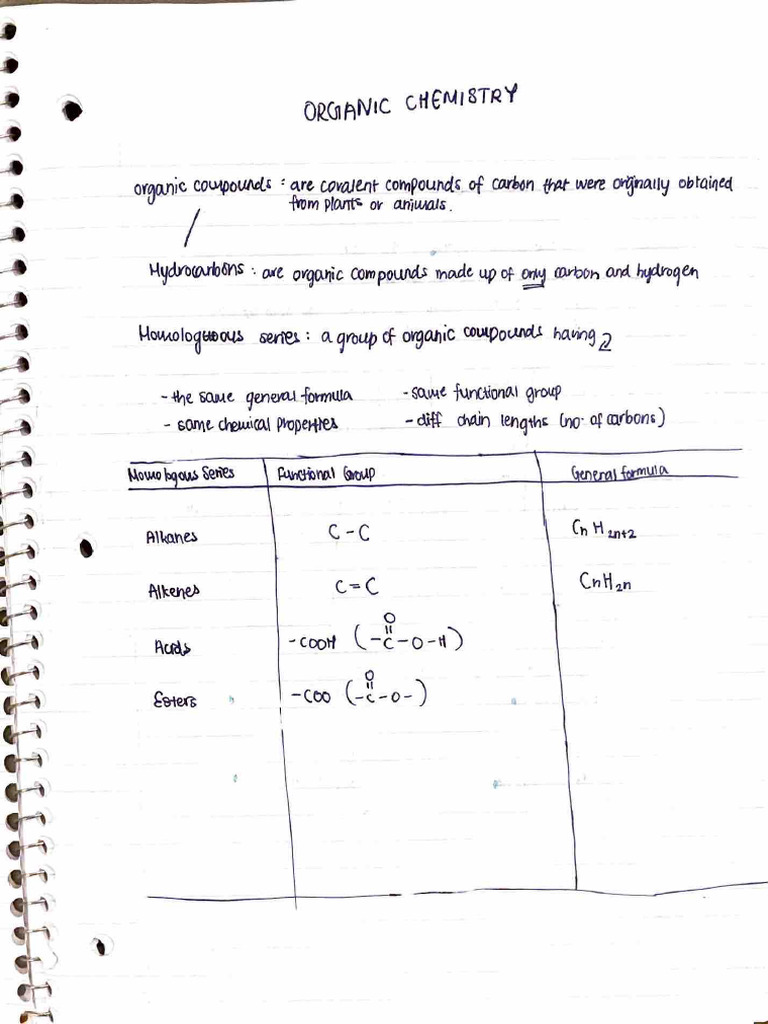 ORGANIC CHEMISTRY
organic compounds : are covalent compounds of carbon that were orginally obtained
from plants or animals.
Hydrocarbons : are organic compounds made up of only carbon and hydrogen
Homologuous series : a group of organic compounds having
- the same general formula - same functional group
- same chemical properties - diff chain lengths (no. of carbons)
Homologous Series Functional Group General formula
Alkanes C - C CnH2n+2
Alkenes C = C CnH2n
O
Acids -COOH ( -C-O-H )
O
Esters -COO ( -C-O- )